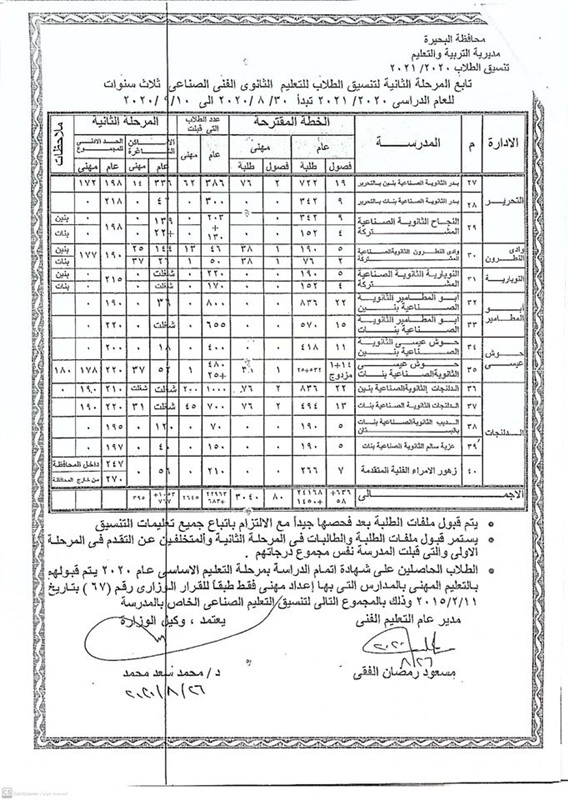 محافظة البحيرة
مديرية التربية والتعليم
تنسيق الطلاب ٢٠٢٠/ ٢٠٢١
تابع المرحلة الثانية لتنسيق الطلاب للتعليم الثانوى الفنى الصناعى ثلاث سنوات
للعام الدراسى ٢٠٢٠/ ٢٠٢١ تبدأ ٣٠/ ٨/ ٢٠٢٠ الى ١٠/ ٩/ ٢٠٢٠
الادارة م المدرسة الخطة المقترحة عدد الطلاب التى قبلت الأماكن الشاغرة المرحلة الثانية ملاحظات
عام مهنى عام مهنى عام مهنى الحد الادنى للمجموع
فصول طلبة فصول طلبة عام مهنى
التحرير ٢٧ بدر الثانوية الصناعية بنين بالتحرير ١٩ ٧٢٢ ٢ ٧٦ ٣٨٦ ٦٢ ٣٣٦ ١٤ ١٩٨ ١٧٢
٢٨ بدر الثانوية الصناعية بنات بالتحرير ٩ ٣٤٢ ٠ ٠ ٣٠٠ ٠ ٠ ٢١٨ ٠
٢٩ النجاح الثانوية الصناعية المشتركة ٩ ٣٤٢ ٠ ٠ ٢٠٣ ٠ ١٣٩ ٠ ١٩٨ ٠ بنين
٤ ١٥٢ ٠ ٠ ١٣٠ ٠ +٢٢ ٠ بنات
وادى النطرون ٣٠ وادى النطرون الثانوية الصناعية المشتركة ٥ ١٩٠ ١ ٣٨ ٤٦ ١٣ ١٤٤ ٢٥ ١٩٠ ١٧٧ بنين
٢ ٧٦ ١ ٣٨ ٥٠ ١ ٢٦ ٣٧ بنات
النوبارية ٣١ النوبارية الثانوية الصناعية المشتركة ٥ ١٩٠ ٠ ٠ ٢٢٠ ٠ شغلت ٠ ٢١٥ ٠ بنين
٤ ١٥٢ ٠ ٠ ١٧٠ ٠ شغلت ٠ بنات
أبو المطامير ٣٢ أبو المطامير الثانوية الصناعية بنين ٢٢ ٨٣٦ ٠ ٠ ٨٠٠ ٠ ٣٦ ٠ ١٩٠ ٠
٣٣ أبو المطامير الثانوية الصناعية بنات ١٥ ٥٧٠ ٠ ٠ ٦٥٥ ٠ شغلت ٠ ٢٢٠ ٠
حوش عيسى ٣٤ حوش عيسى الثانوية الصناعية بنين ١١ ٤١٨ ٠ ٠ ٤٠٠ ٠ ١٨ ٠ ٢٠٠ ٠
٣٥ حوش عيسى الثانوية الصناعية بنات ١+١٤ مزدوج ٥٣٢+٢٥ ١ ٣٨ ٤٨٠ +٢٥ ١ ٥٢ ٣٧ ٢٢٠ ١٧٨ ١٨٠
الدلنجات ٣٦ الدلنجات الثانوية الصناعية بنين ٢٢ ٨٣٦ ٢ ٧٦ ١٠٠٠ ٢٠٠ شغلت شغلت ١٩٠ ٢١٠ ٠
٣٧ الدلنجات الثانوية الصناعية بنات ١٣ ٤٩٤ ٢ ٧٦ ٧٠٠ ٤٥ شغلت ٣١ ٢٢٠ ١٩٠
٣٨ الثانوية الصناعية بنات ٥ ١٩٠ ٠ ٠ ٧٠ ٠ ١٢٠ ٠ ١٩٥ ٠
٣٩ عزبة سالم الثانوية الصناعية بنات ٥ ١٩٠ ٠ ٠ ١٥٠ ٠ ٤٠ ٠ ١٩٧ ٠
٤٠ زهور الامراء الفنية المتقدمة ٧ ٢٦٦ ٠ ٠ ٢١٠ ٠ ٥٦ ٠ ٢٤٧ داخل المحافظة
٢٧٠ من خارج المحافظة
الاجمالى ٦٣٦+ ٥٨ ٢٤١٦٨ +١٤٥٠ ٨٠ ٣٠٤٠ ٢٢٩٦٣ +٦٨٣ ٢٦٤٥ ٧٦٧ ٣٩٥
يتم قبول ملفات الطلبة بعد فحصها جيداً مع الالتزام باتباع جميع تعليمات التنسيق
يستمر قبول ملفات الطلبة والطالبات فى المرحلة الثانية والمتخلفين عن التقدم فى المرحلة
الاولى والتى قبلت المدرسة نفس مجموع درجاتهم
الطلاب الحاصلين على شهادة إتمام الدراسة بمرحلة التعليم الاساسى عام ٢٠٢٠ يتم قبولهم
بالتعليم المهنى بالمدارس التى بها إعداد مهنى فقط طبقاً للقرار الوزارى رقم (٦٧) بتاريخ
٢٠١٥/٢/١١ وذلك بالمجموع التالى لتنسيق التعليم الصناعى الخاص بالمدرسة
مدير عام التعليم الفنى
يعتمد ، وكيل الوزارة
٨/٢٦
مسعود رمضان الفقى
د/ محمد سعد محمد
٢٠٢٠/٨/٢٦